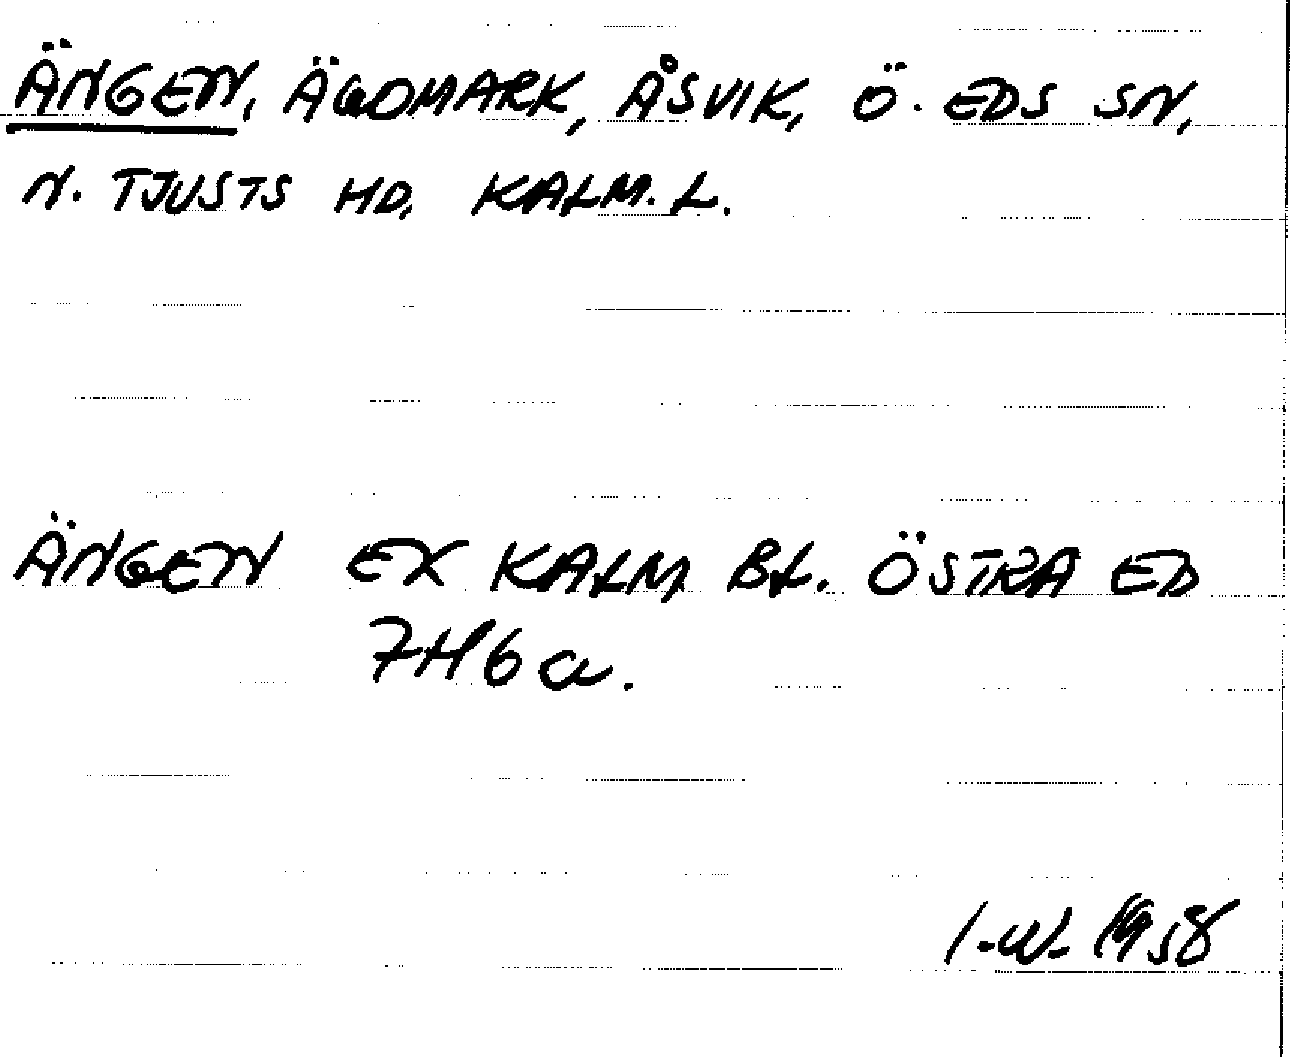 ÄNGEN, ÄGOMARK, ÅSVIK, Ö. EDS SN,
N. TJUSTS HD, KALM. L.
ÄNGEN EK KALM BL. ÖSTRA ED
7H6a.
1958